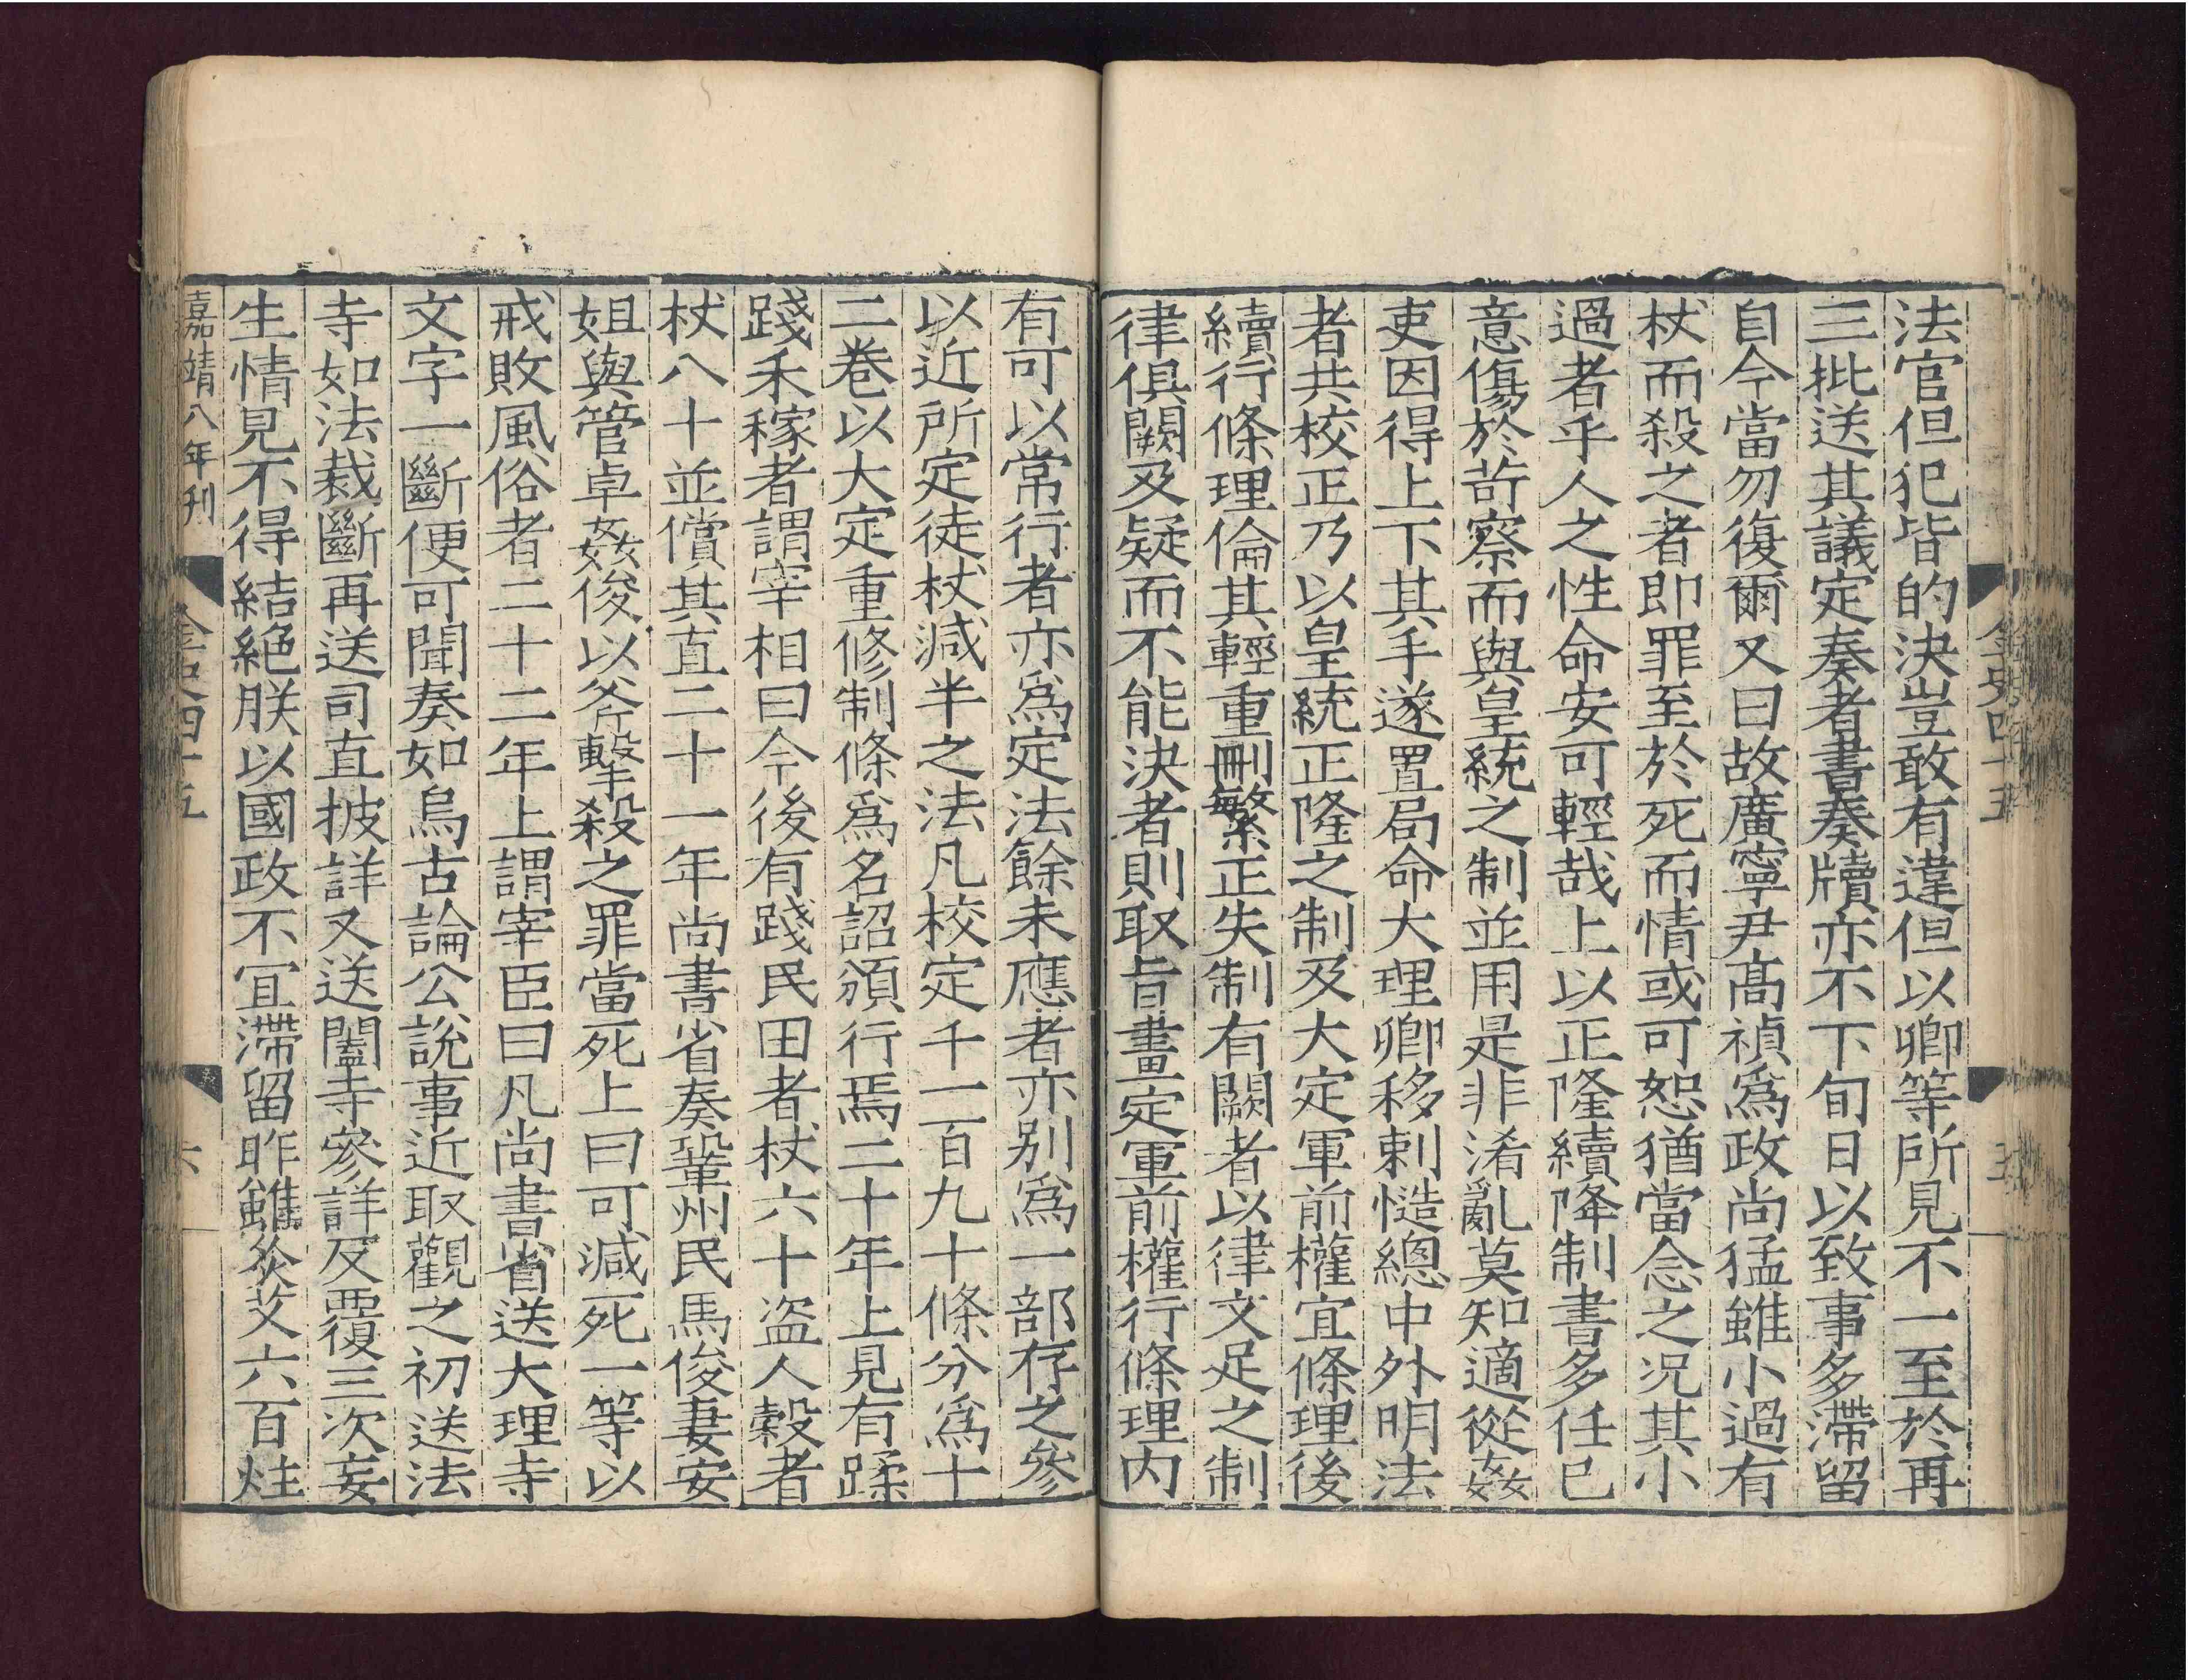 法官但犯皆的決豈敢有違但以卿等所見不一至於再
三批送其議定奏者書奏牘亦不下旬日以致事多滯留
自今當勿復爾又曰故廣寧尹高禎爲政尚猛雖小過有
杖而殺之者即罪至於死而情或可恕猶當念之況其小
過者乎人之性命安可輕哉上以正隆續降制書多任己
意傷於苛察而與皇統之制並用是非淆亂莫知適從姦
吏因得上下其手遂置局命大理卿移剌慥總中外明法
者共校正乃以皇統正隆之制及大定軍前權宜條理後
續行條理倫其輕重刪繁正失制有闕者以律文足之制
律俱闕及疑而不能決者則取旨畫定軍前權行條理內
有可以常行者亦爲定法餘未應者亦別爲一部存之參
以近所定徒杖減半之法凡校定千一百九十條分爲十
二卷以大定重修制條爲名詔頒行焉二十年上見有蹂
踐禾稼者謂宰相曰今後有踐民田者杖六十盜人穀者
杖八十並償其直二十一年尚書省奏鞏州民馬俊妻安
姐與管卓姦俊以斧擊殺之罪當死上曰可減死一等以
戒敗風俗者二十二年上謂宰臣曰凡尚書省送大理寺
文字一斷便可聞奏如烏古論公說事近取觀之初送法
寺如法裁斷再送司直披詳又送闔寺參詳反覆三次妄
生情見不得結絕朕以國政不宜滯留昨雖炙艾六百炷
嘉靖八年刊 金史四十五 六